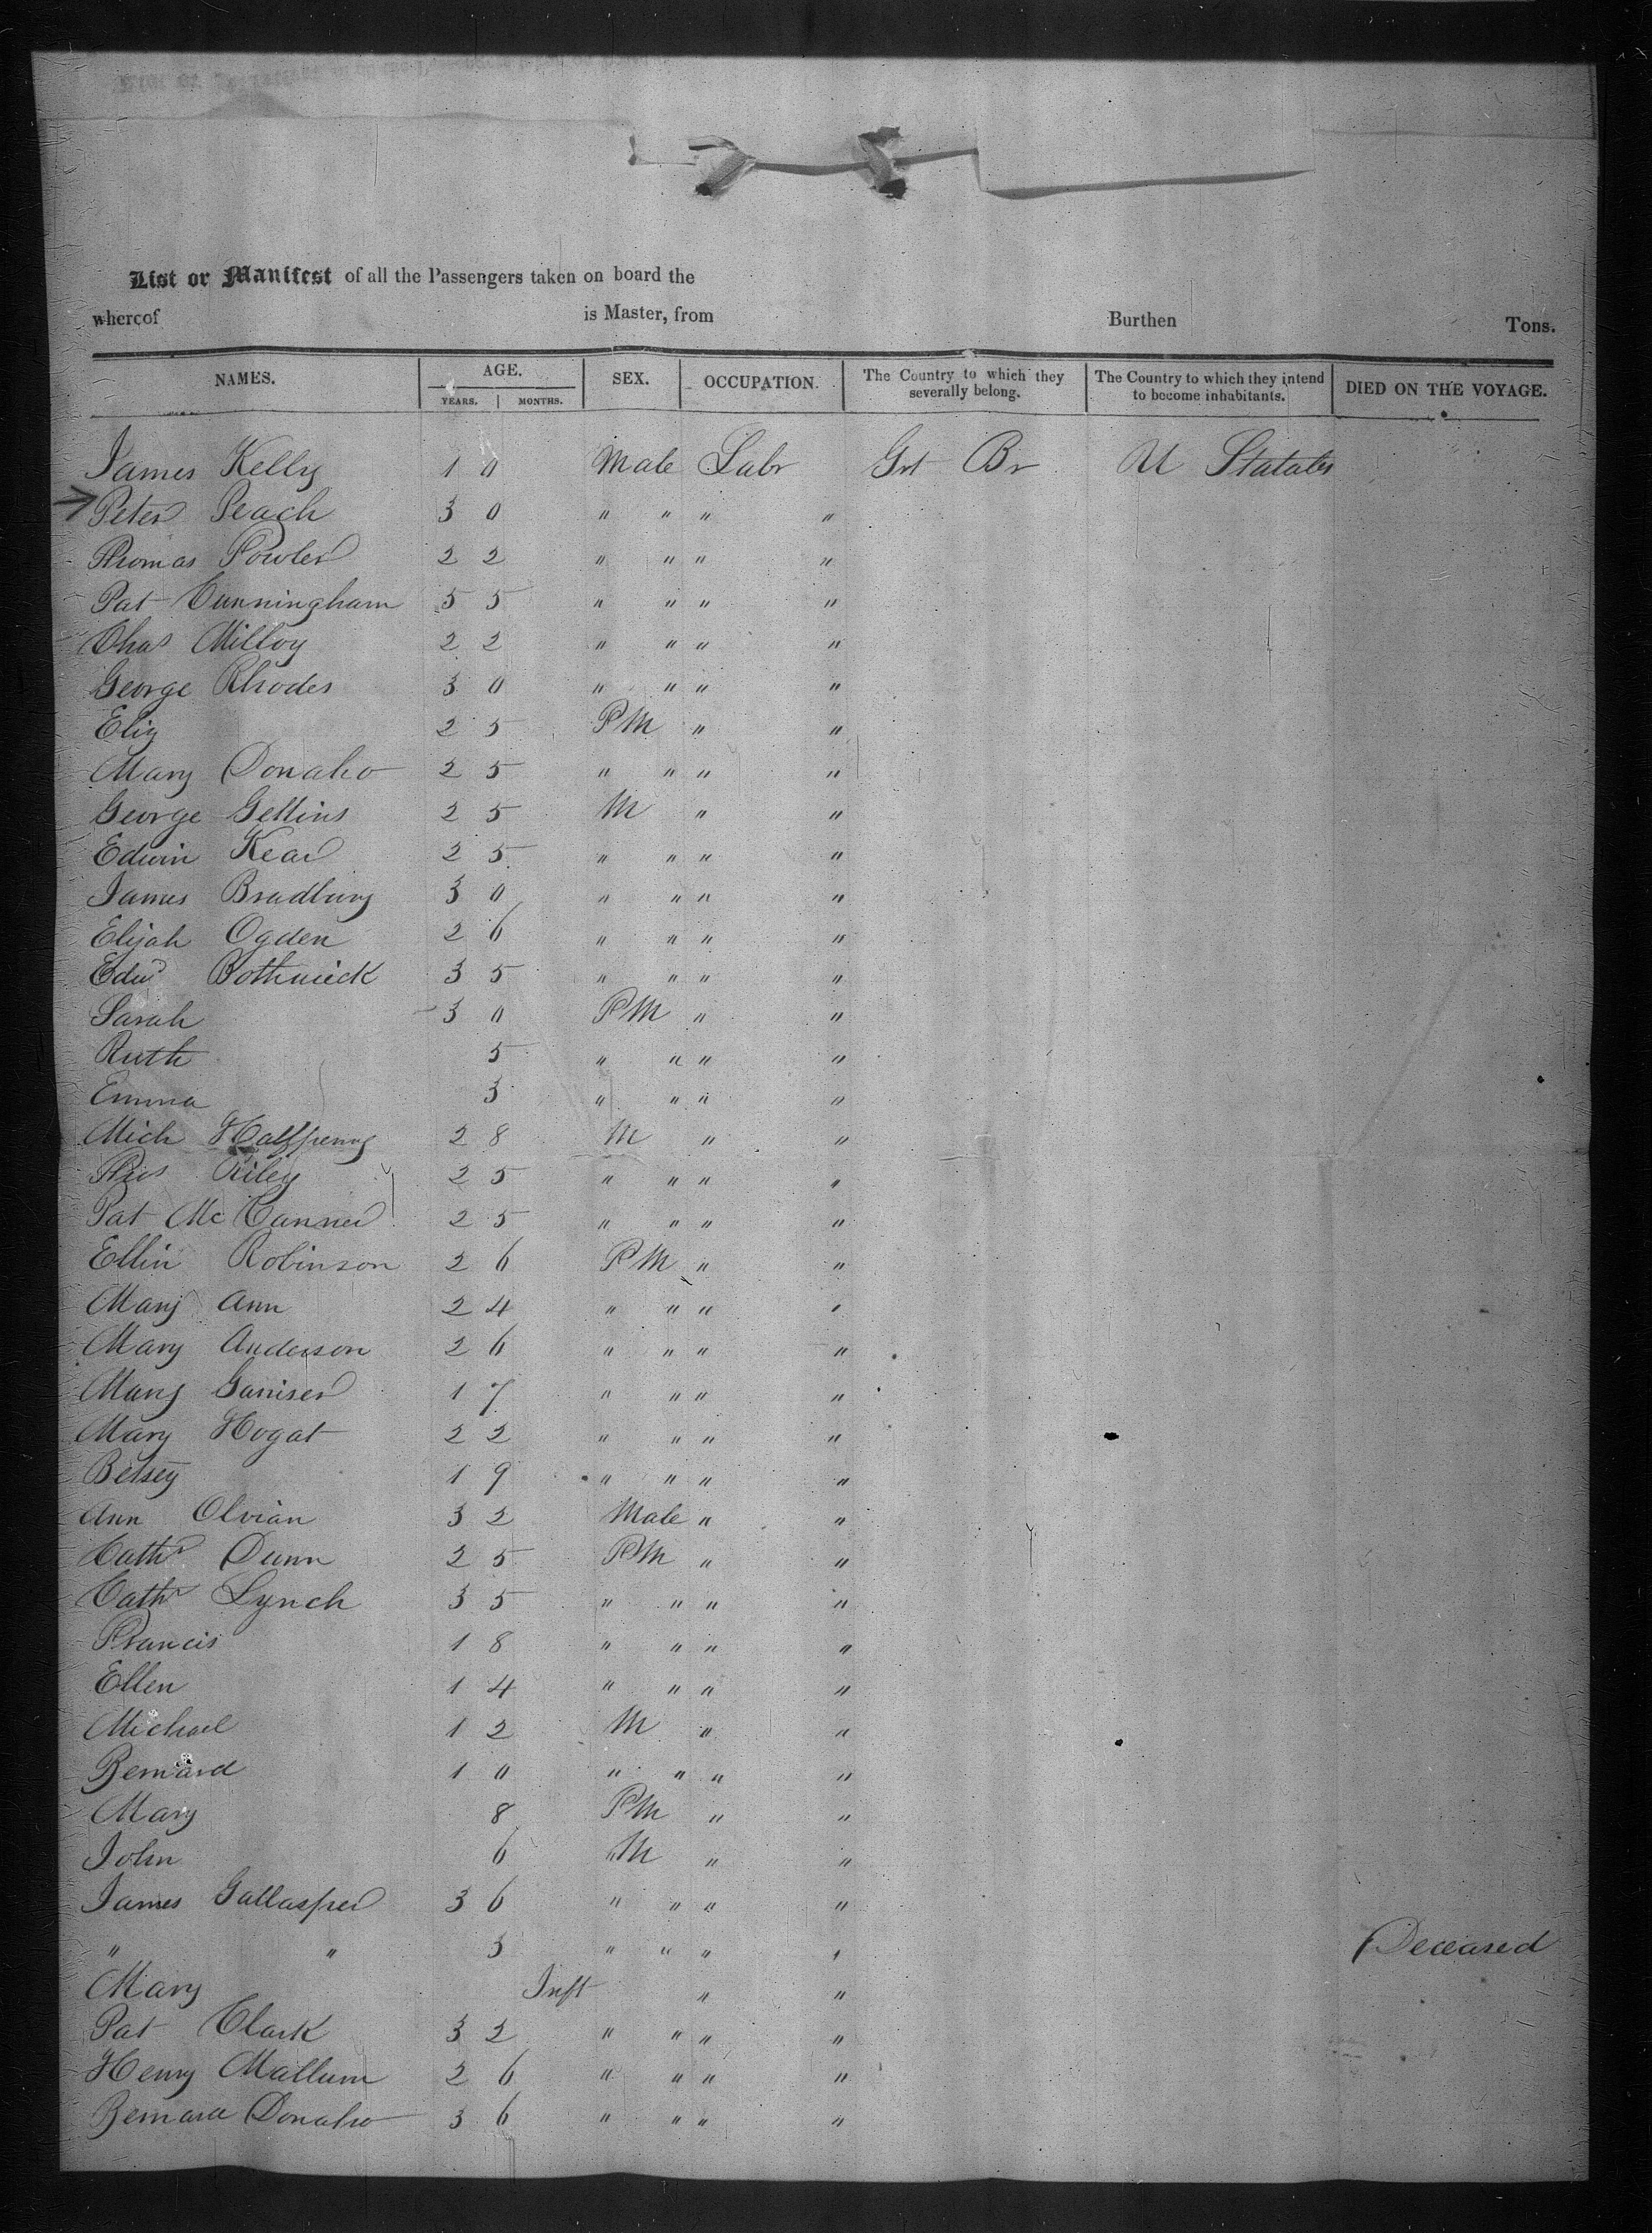 List or Manifest of all the Passengers taken on board the
whereof is Master, from Burthen Tons.
NAMES. AGE. SEX. OCCUPATION. The Country to which they severally belong. The Country to which they intend to become inhabitants. DIED ON THE VOYAGE.
YEARS. MONTHS.
James Kelly 1 0 Male Labr Grt Br U Statates
Peter Peach 3 0 " " " "
Thomas Fowler 2 2 " " " "
Pat Cunningham 5 5 " " " "
Chas Milloy 2 2 " " " "
George Rhodes 3 0 " " " "
Eliz 2 5 FM " "
Mary Donaho 2 5 " " " "
George Gettins 2 5 M " "
Edwin Kear 2 5 " " " "
James Bradbury 3 0 " " " "
Elijah Ogden 2 6 " " " "
Edwd Bothwick 3 5 " " " "
Sarah 3 0 FM " "
Ruth 5 " " " "
Emma 3 " " " "
Mich Halfpenny 2 8 M " "
Riley 2 5 " " " "
Pat Mc 2 5 " " " "
Ellin Robinson 2 6 FM " "
Mary Ann 2 4 " " " "
Mary Anderson 2 6 " " " "
Mary 1 7 " " " "
Mary Hogat 2 2 " " " "
Betsey 1 9 " " " "
Ann Olvian 3 2 Male " "
Cathr Dunn 2 5 FM " "
Cathr Lynch 3 5 " " " "
Francis 1 8 " " " "
Ellen 1 4 " " " "
Michael 1 2 M " "
Bernard 1 0 " " " "
Mary 8 FM " "
John 6 M " "
James Gallasper 3 6 " " " "
" " 3 " " " " Deceased
Mary Inft " "
Pat Clark 3 2 " " " "
Henry Mallum 2 6 " " " "
Bernard Donaho 3 6 " " " "